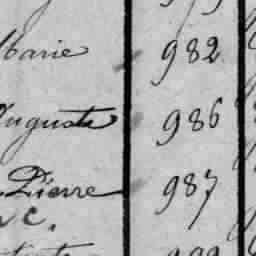 Marie 982
Auguste 986
Pierre 987